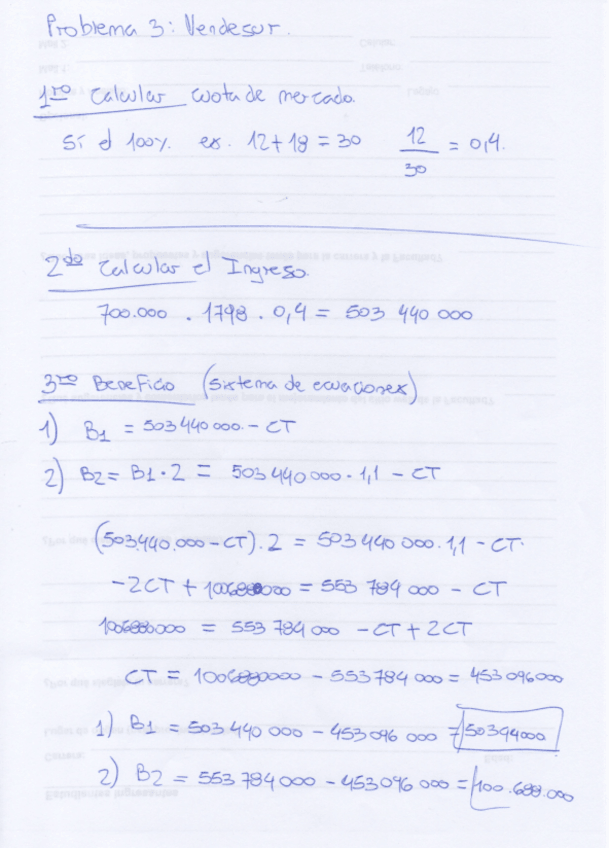 Problema 3: Vendesur.
1ro Calcular cuota de mercado.
Si el 100% es. 12+18 = 30 12/30 = 0,4.
2do Calcular el Ingreso.
700.000 . 1798 . 0,4 = 503 440 000
3ro Beneficio (sistema de ecuaciones)
1) B1 = 503 440 000. - CT
2) B2 = B1 . 2 = 503 440 000 . 1,1 - CT
(503.440.000 - CT) . 2 = 503 440 000 . 1,1 - CT.
-2CT + 1006880000 = 553 784 000 - CT
1006880000 = 553 784 000 - CT + 2CT
CT = 1006880000 - 553784 000 = 453 096000
1) B1 = 503 440 000 - 453 096 000 = 50394000
2) B2 = 553 784 000 - 453 096 000 = 100.688.000